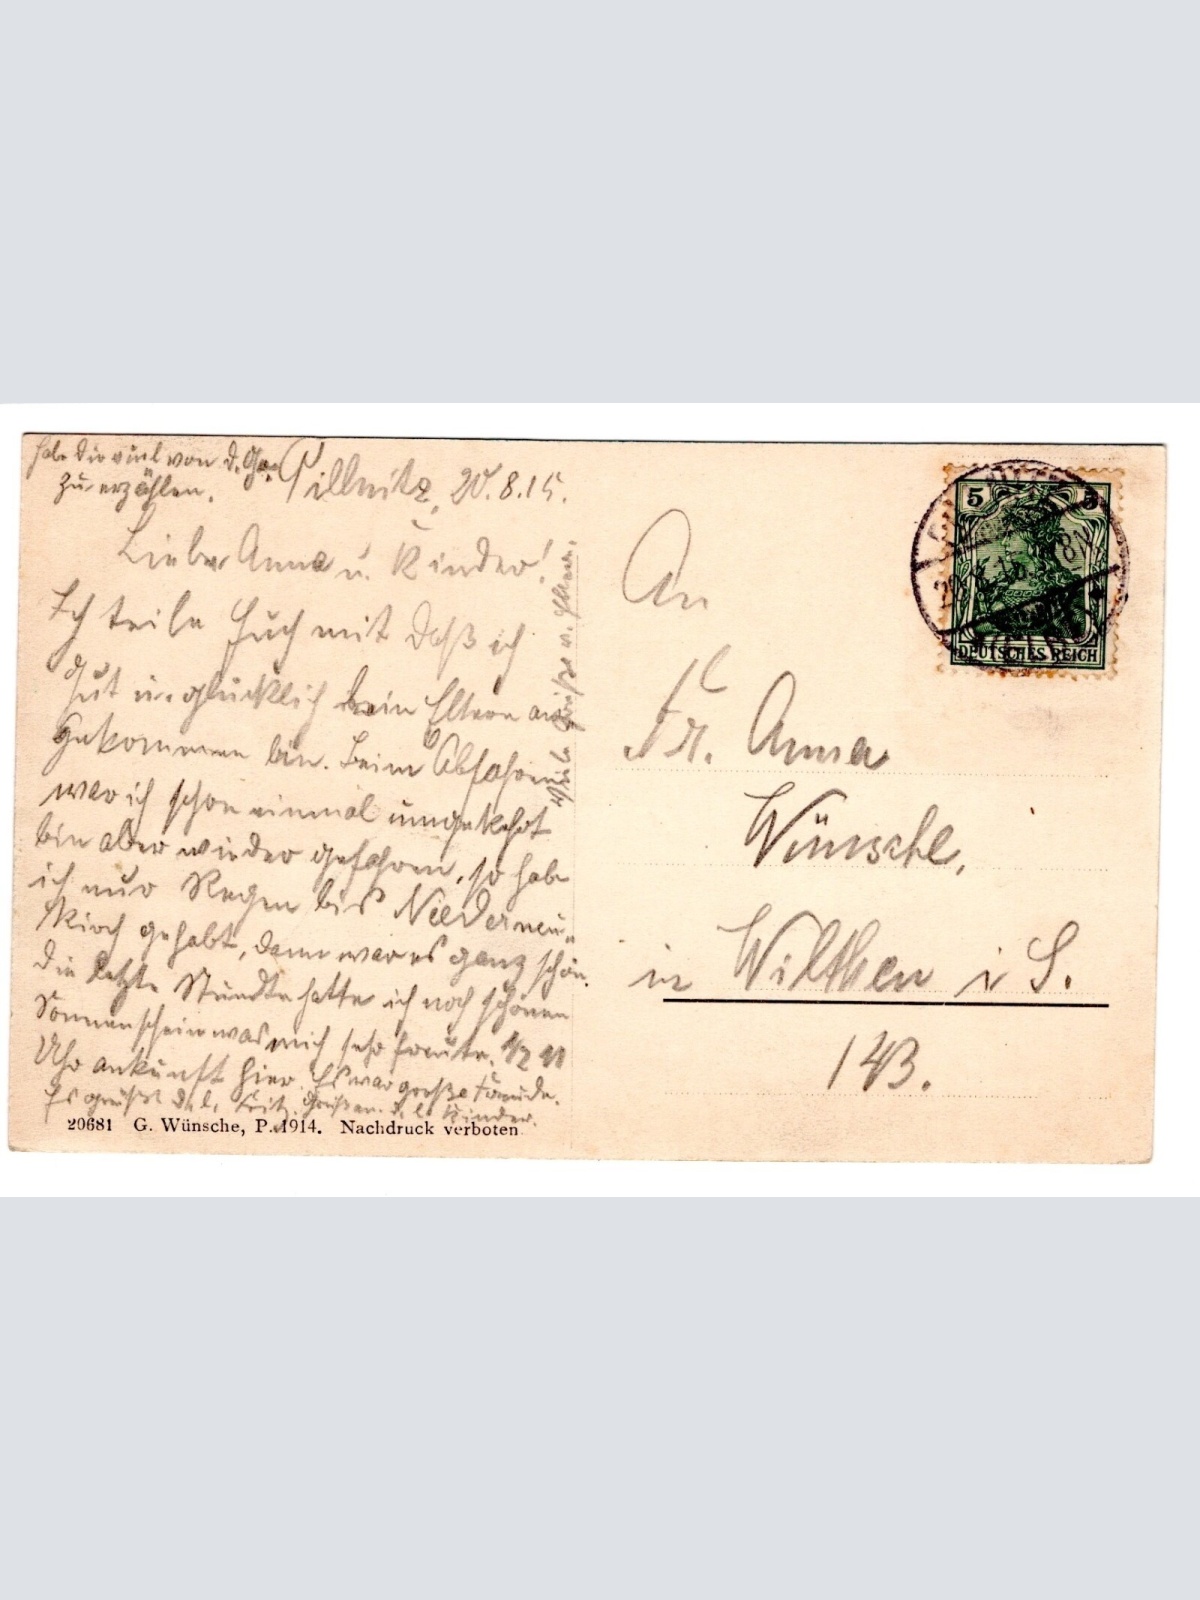 habe dir viel von d.
zu erzählen.
Pillnitz, 20.8.15.
Liebe Anna u. Kinder!
Ich teile Euch mit daß ich
gut u. glücklich beim Eltern an
gekommen bin. Beim Abfahren
war ich schon einmal umgekehrt
bin aber wieder gefahren, so habe
ich nur Regen bis Niederneu-
kirch gehabt, dann war es ganz schön.
die letzte Stunde hatte ich noch schönen
Sonnenschein was mich sehr freute. 1/2 11
Uhr ankunft hier. Es war große Freude.
Es grüßt d. l. Fritz. Grüße an d. l. Kinder.
Viele Grüße v.
20681 G. Wünsche, P. 1914. Nachdruck verboten
5 5
DEUTSCHES REICH
An
Fr. Anna
Wünsche,
in Wilthen i S.
143.